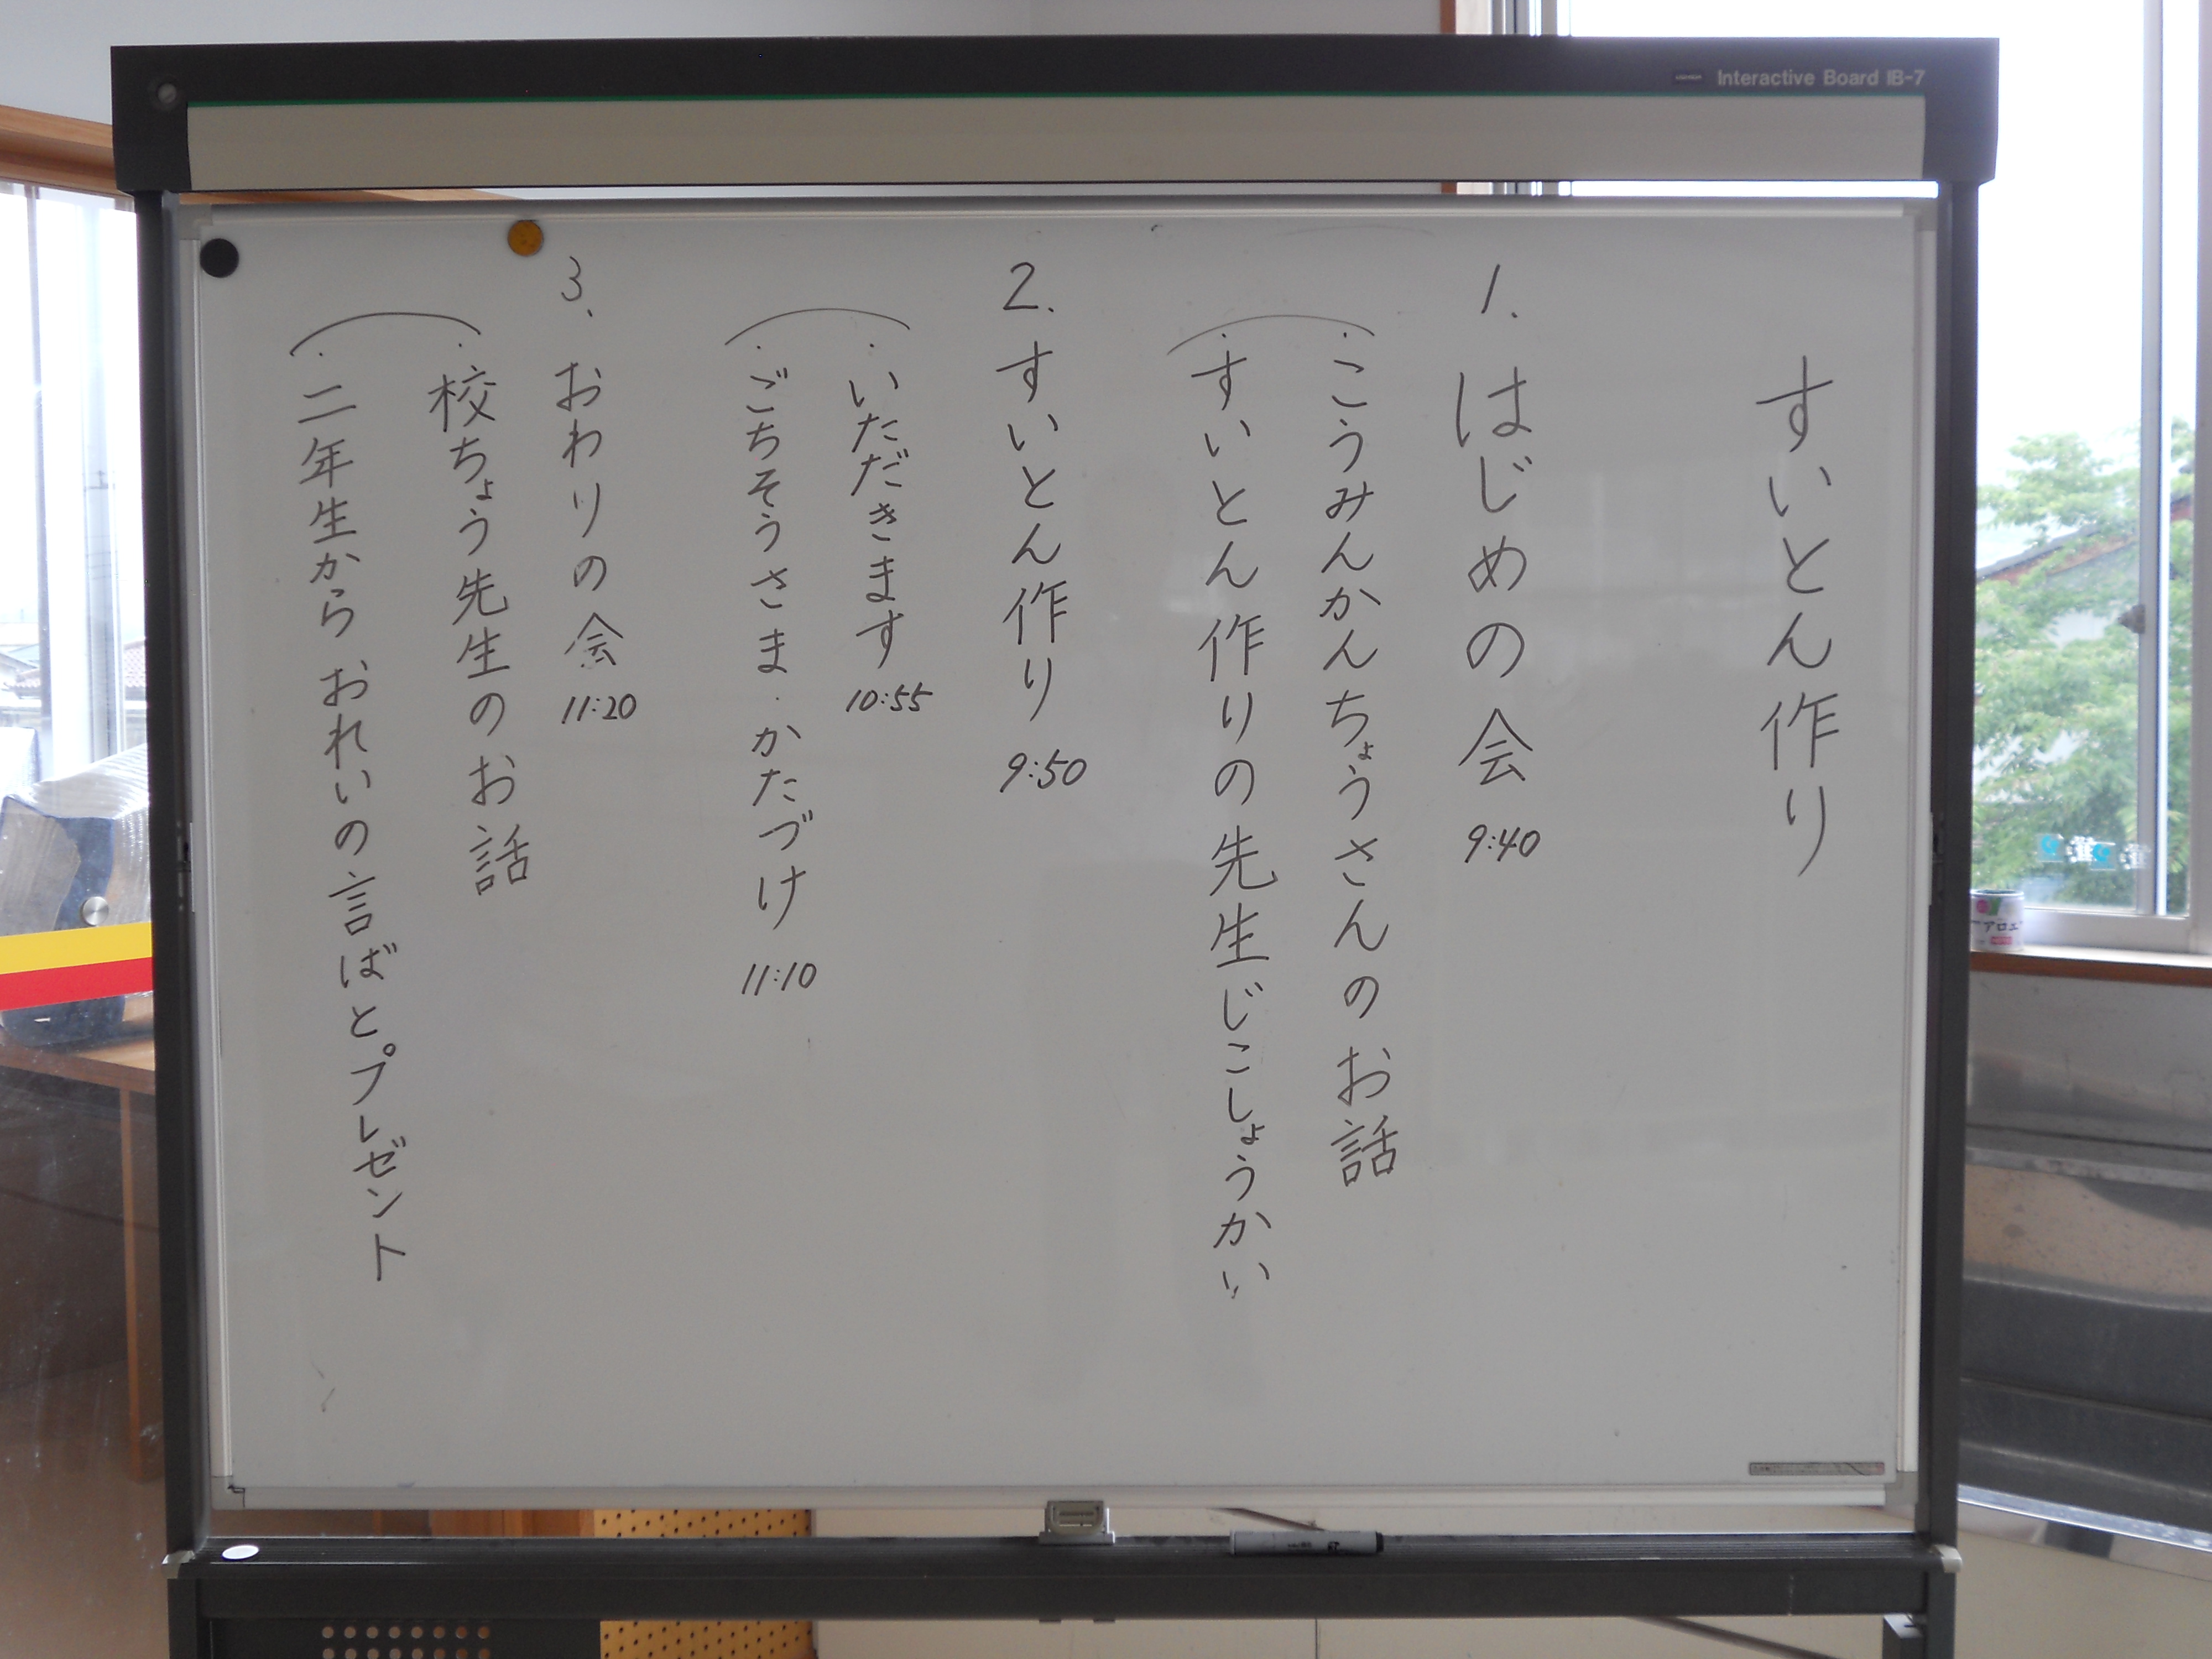 Interactive Board IB-7
すいとん作り
1. はじめの会 9:40
・こうみんかんちょうさんのお話
・すいとん作りの先生じこしょうかい
2. すいとん作り 9:50
・いただきます 10:55
・ごちそうさま・かたづけ 11:10
3. おわりの会 11:20
・校ちょう先生のお話
・二年生から おれいの言ばとプレゼント
アロエ